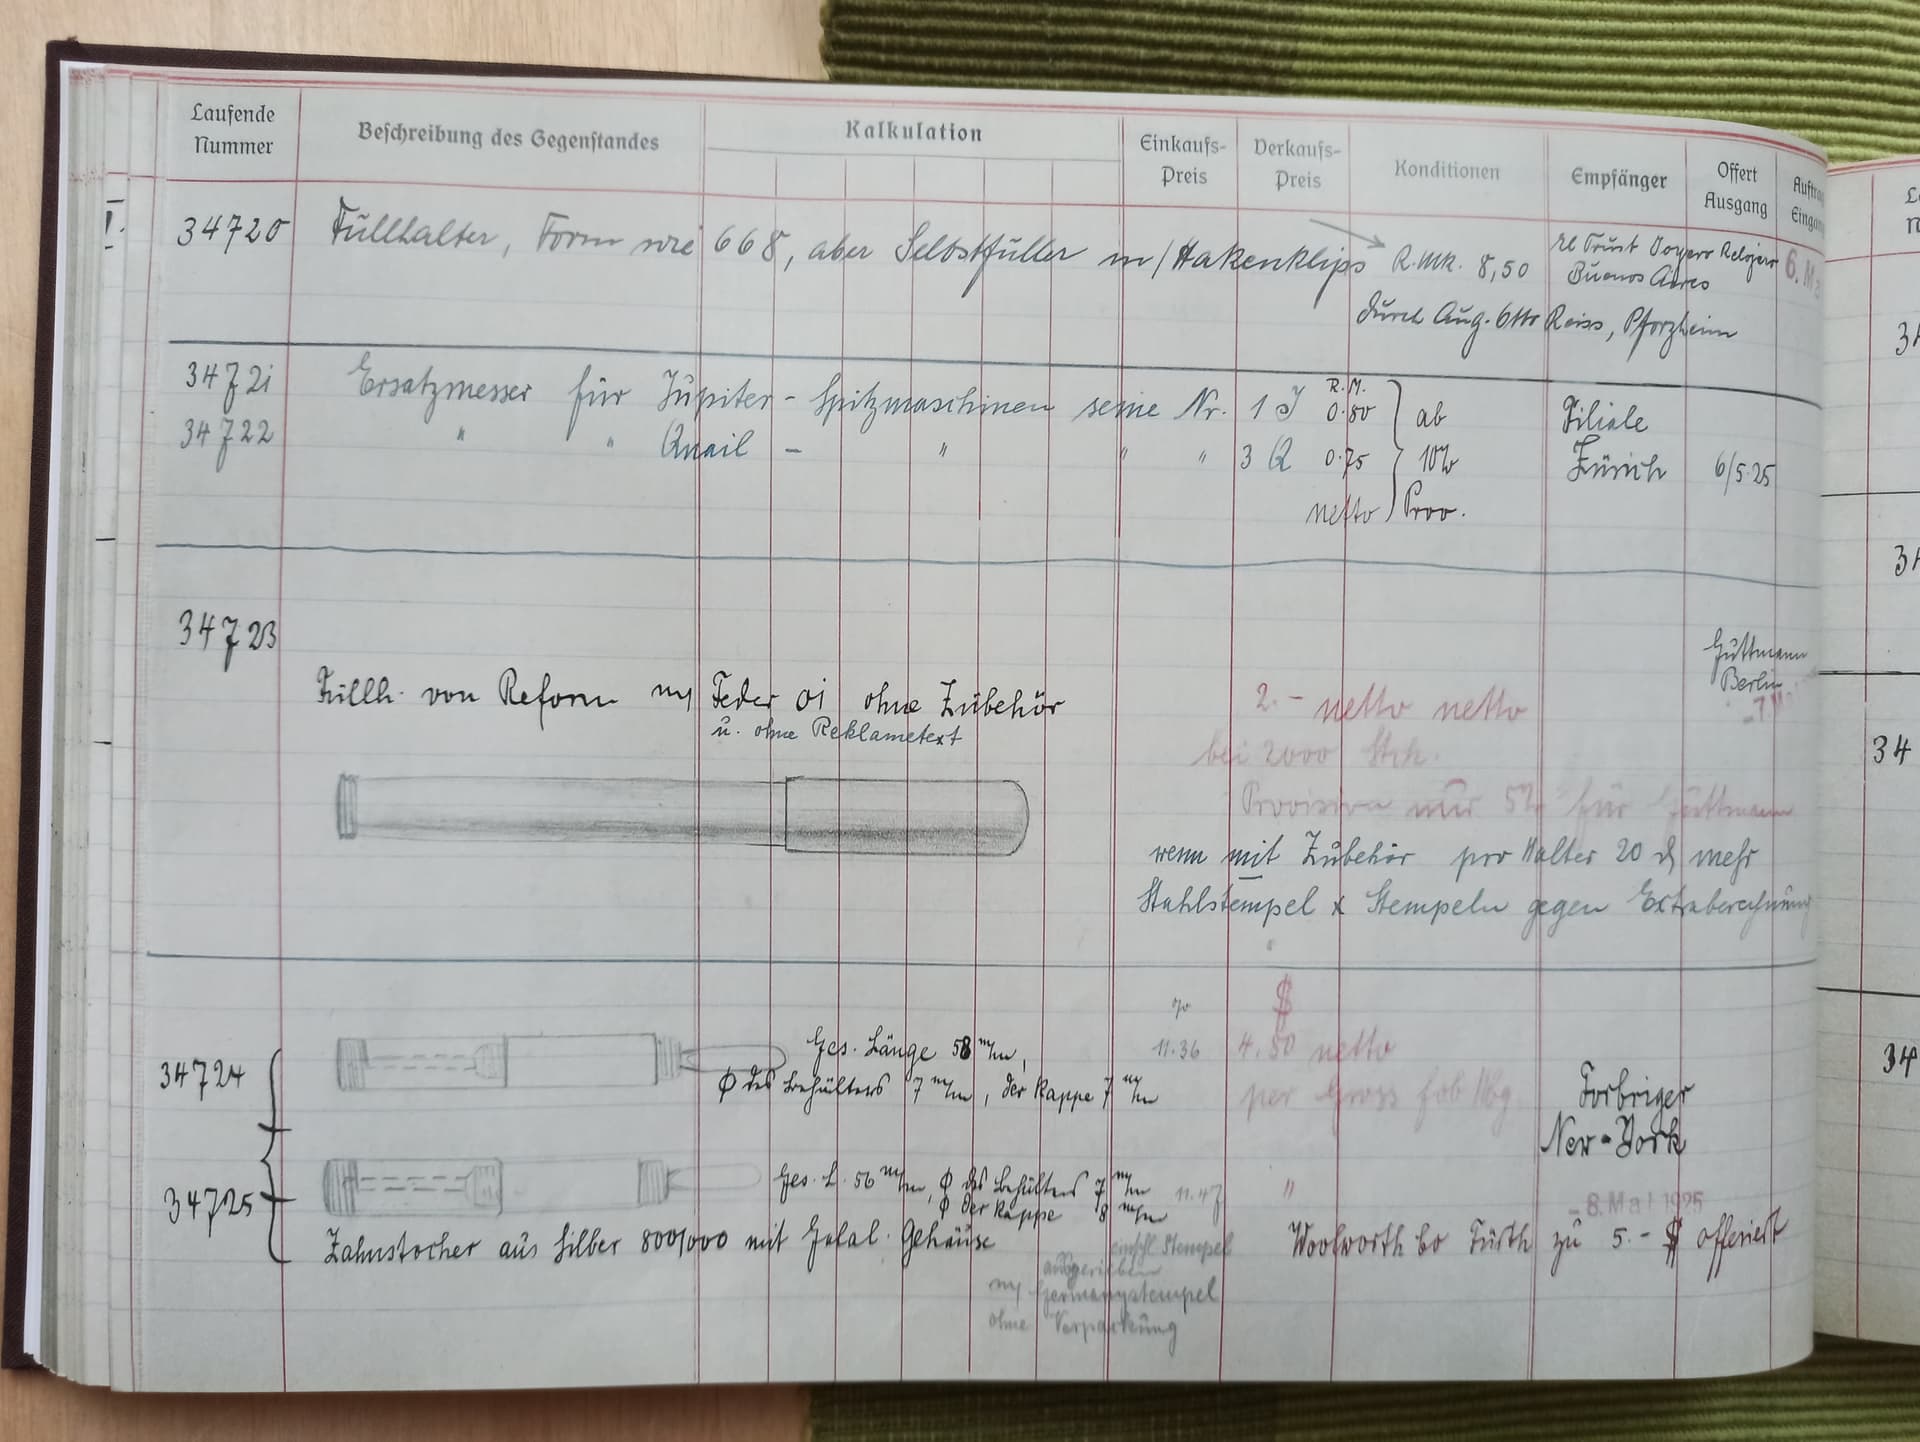 Laufende Nummer
Beschreibung des Gegenstandes
Kalkulation
Einkaufs-Preis
Verkaufs-Preis
Konditionen
Empfänger
Offert Ausgang
34720 Füllhalter, Form wie 668, aber Selbstfüller m/Hakenklips R.Mk. 8,50
El Trust Joyero Relojero
Buenos Aires
6. Ma
durch Aug. Otto Reiss, Pforzheim
34721 Ersatzmesser für Jupiter - Spitzmaschinen seine Nr. 1 J R.M. 0.80 ab Filiale
34722 " " Quail - " " " 3 Q 0.75 10% Zürich 6/5.25
netto Prov.
34723
Guttmann
Berlin
Füllh. von Reform m/ Feder 01 ohne Zubehör 2.- netto netto
u. ohne Reklametext
bei 2000 Stck.
Provision nur 5% für Guttmann
wenn mit Zubehör pro Halter 20 ₰ mehr
Stahlstempel x Stempeln gegen Extraberechnung
% $
34724 Ges. Länge 58 m/m, 11.36 4.50 netto
ϕ des Behälters 7 m/m, der Kappe 7 m/m per Gross fob Hbg. Forbriger
New-York
34725 Ges. L. 56 m/m, ϕ des Behälters 7 m/m 11.47 "
ϕ der Kappe 8 m/m
- 8. Mai 1925
Zahnstocher aus Silber 800/000 mit Galal. Gehäuse Woolworth Co Fürth zu 5.- $ offeriert
einschl. Stempel
m/ Germanystempel
ohne Verpackung